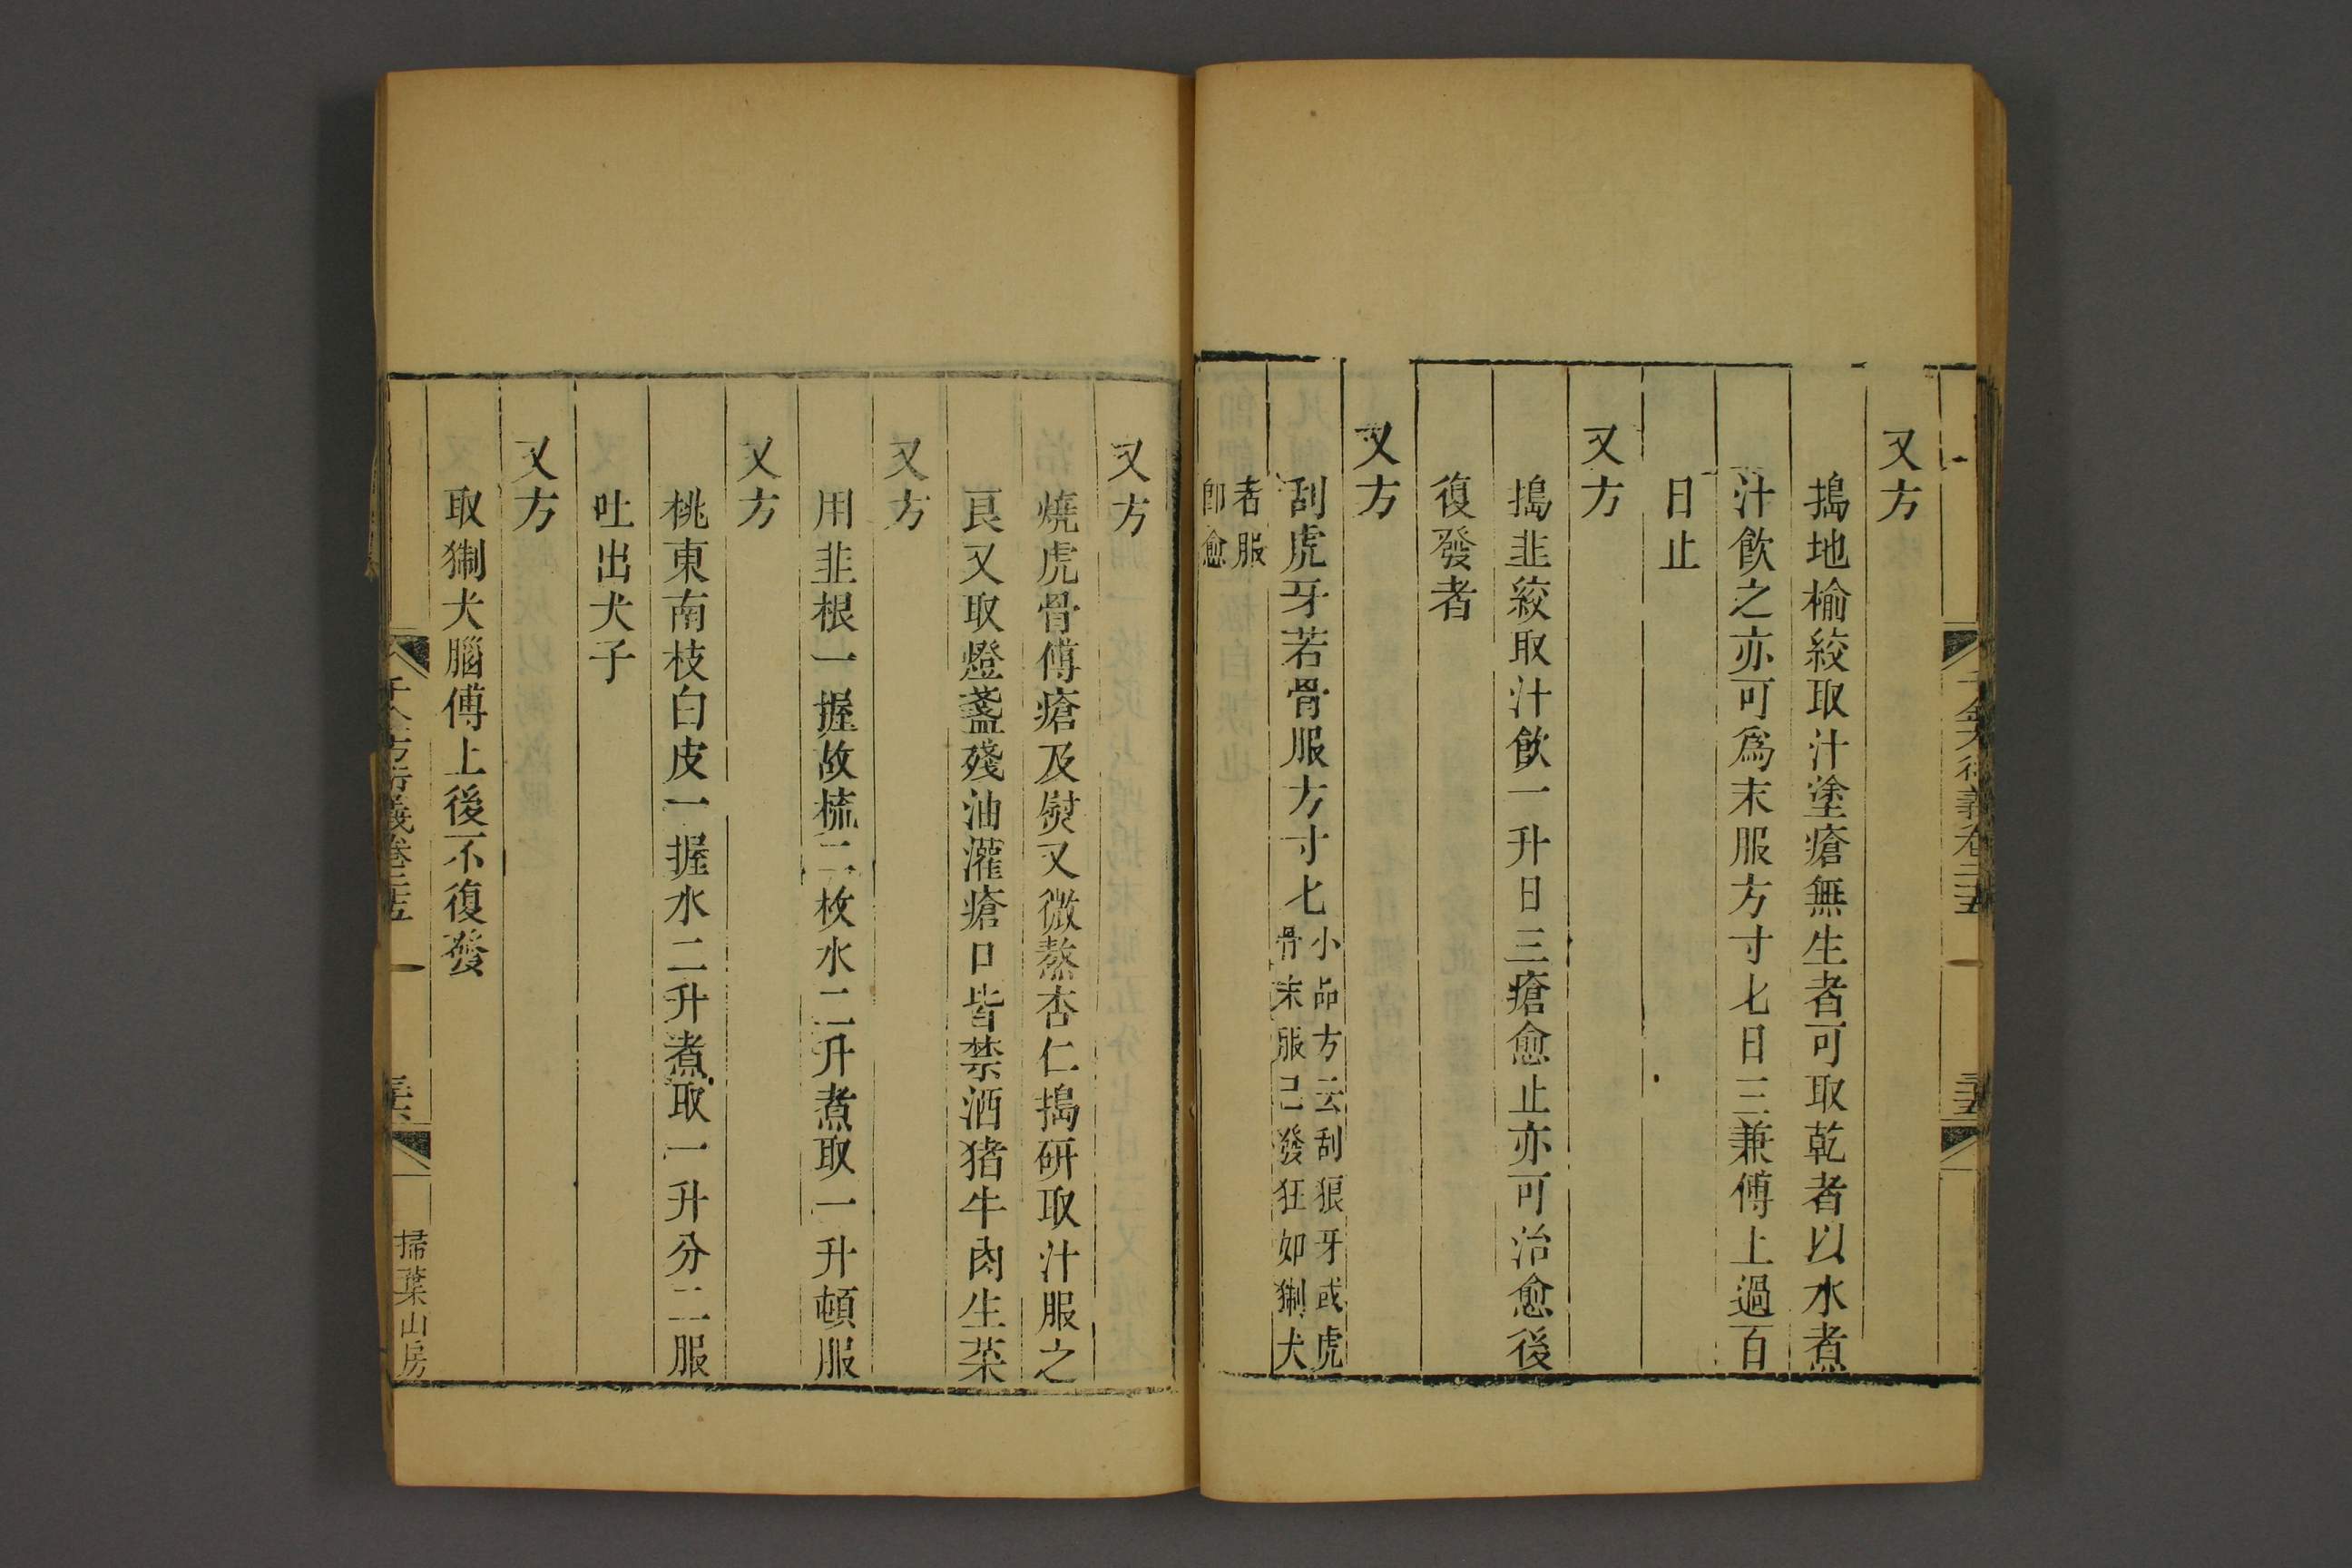 又方
搗地榆絞取汁塗瘡無生者可取乾者以水煮
汁飲之亦可爲末服方寸匕日三兼傅上過百
日止
又方
搗韭絞取汁飲一升日三瘡愈止亦可治愈後
復發者
又方
刮虎牙若骨服方寸匕小品方云刮狼牙或虎
骨末服已發狂如猘犬
者服
卽愈
又方
燒虎骨傅瘡及熨又微熬杏仁搗研取汁服之
良又取燈盞殘油灌瘡口皆禁酒猪牛肉生菜
又方
用韭根一握故梳二枚水二升煮取一升頓服
又方
桃東南枝白皮一握水二升煮取一升分二服
吐出犬子
又方
取猘犬腦傅上後不復發
千金方衍義卷二十五
掃葉山房